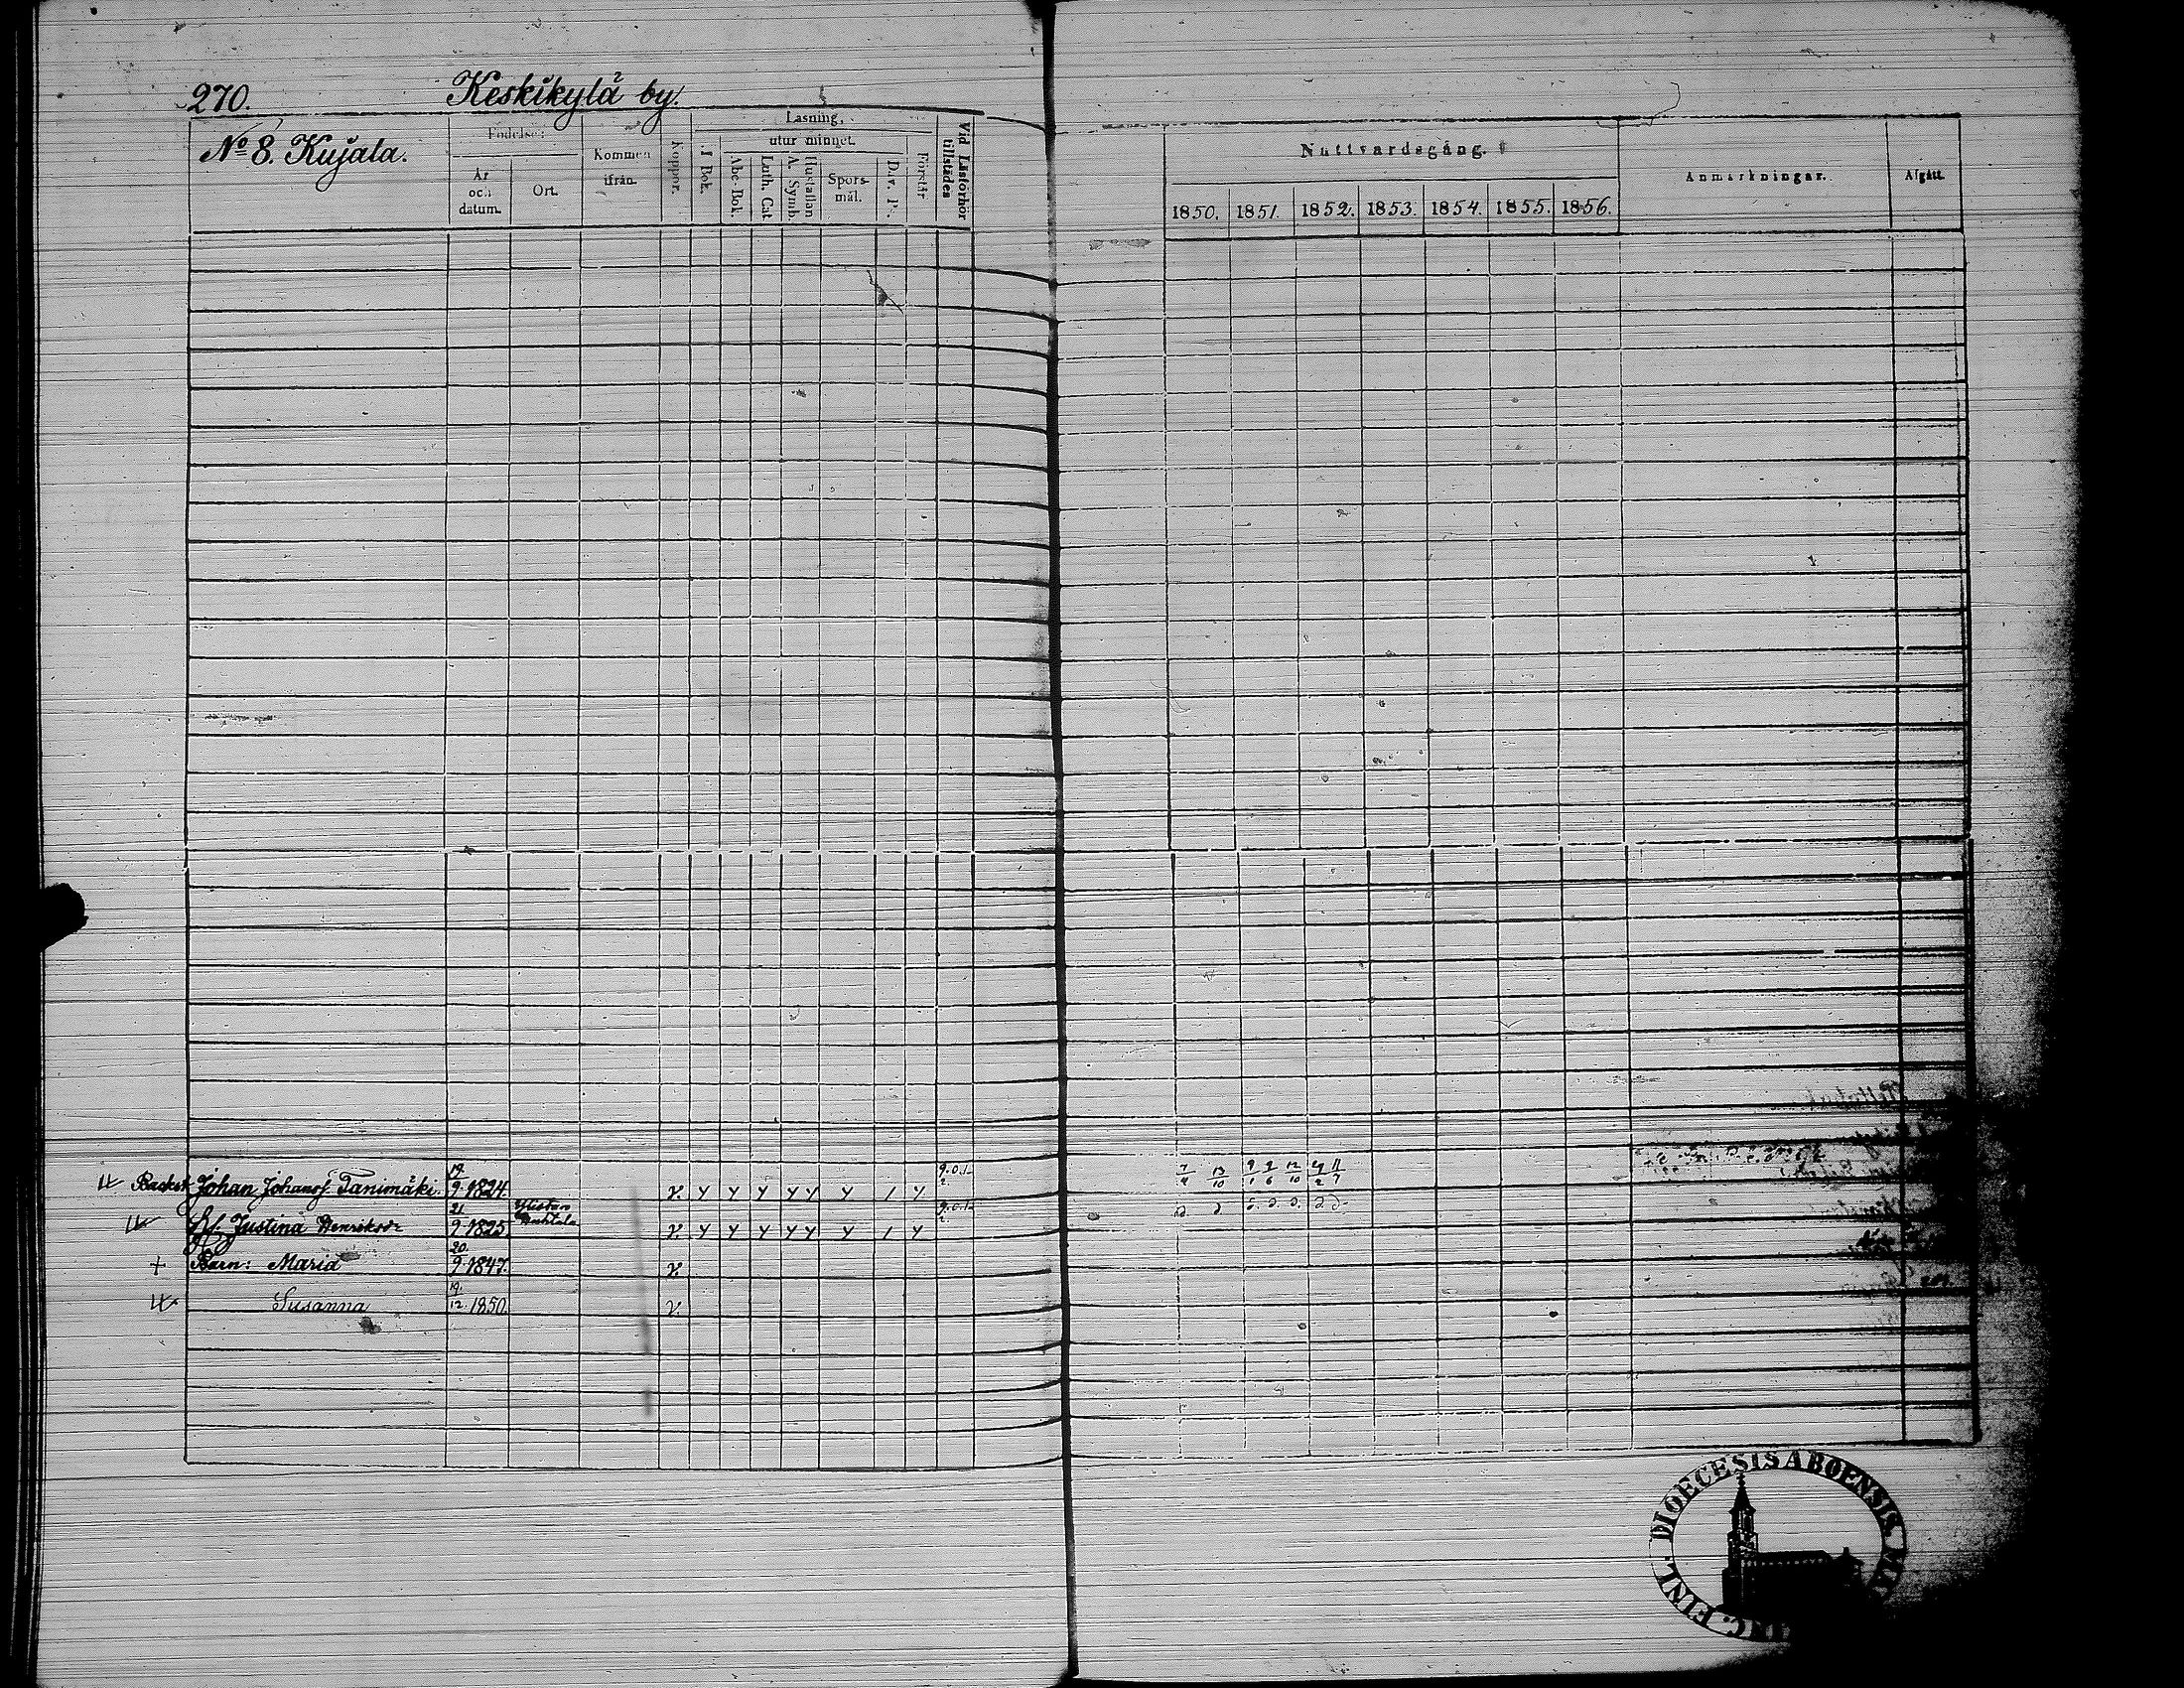 270. Keskikylä by.
No 8. Kujala.
Födelse:
År och datum.
Ort.
Kommen ifrån.
Koppor.
Läsning,
I Bok.
utur minnet.
Abc-Bok.
Luth. Cat.
Hustaflan A. Symb.
Spörs-mål.
D. v. P.
Förstår
Vid Läsförhör tillstädes
Nattvardsgång.
1850. 1851. 1852. 1853. 1854. 1855. 1856.
Anmärkningar.
Afgått.
Backst. Johan Johansf. Tanimäki. 19/9 1824. 9.0.1.
7/4 13/10 9/1 2/6 12/10 11/7
H. Justina Henriksdr 21/9 1825. 9.0.1.
Barn: Maria 20/9 1847. v.
Susanna 19/12 1850. v.
DIOECESIS ABOENSIS
FINL.